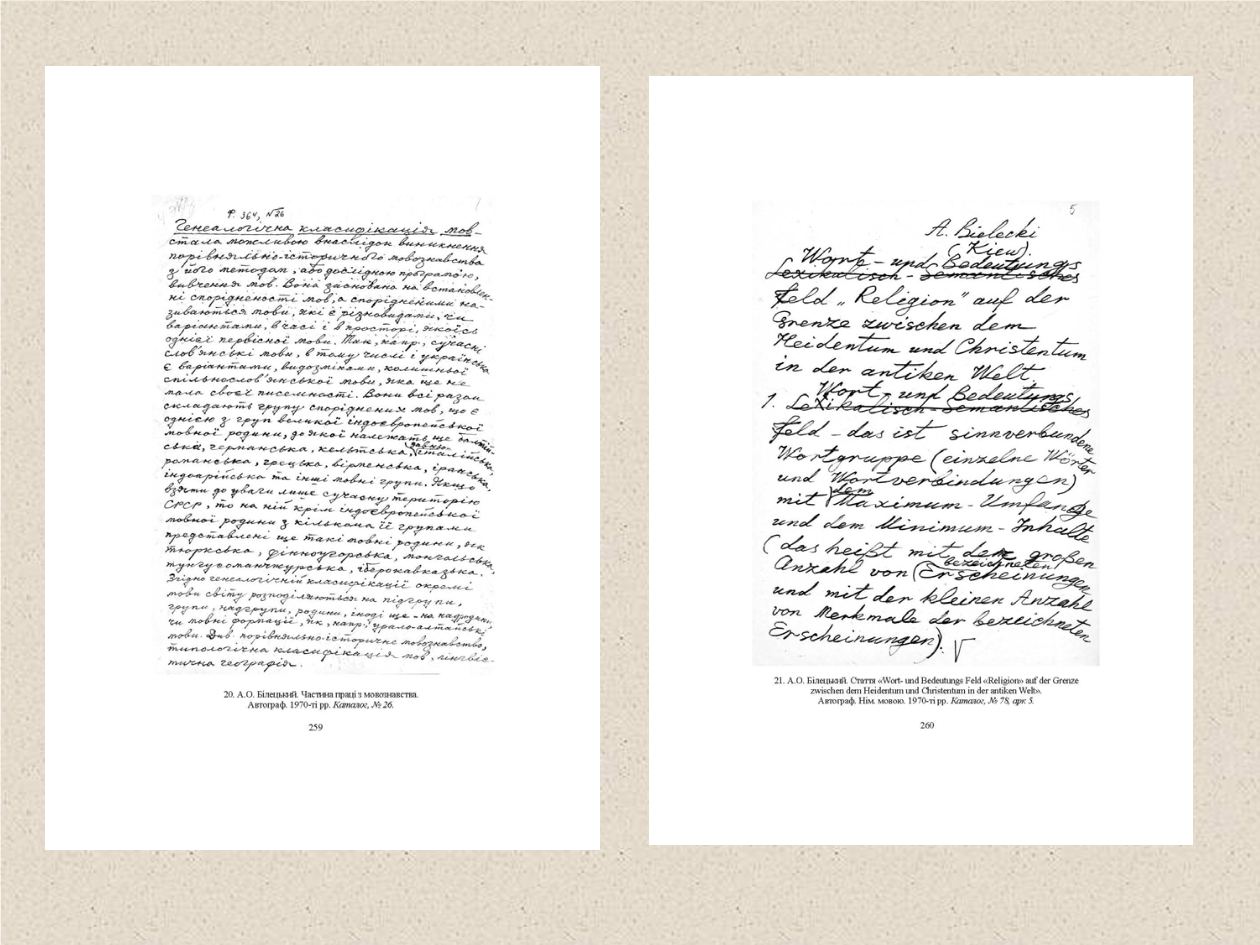 Ф. 364, №26
Генеалогічна класифікація мов –
стала можливою внаслідок виникнення
порівняльно-історичного мовознавства
з його методом, або дослідною програмою,
вивчення мов. Вона заснована на встановлен-
ні спорідненості мов, а спорідненими на-
зиваються мови, які є різновидами, чи
варіантами, в часі і в просторі, якоїсь
однієї первісної мови. Так, напр., сучасні
слов'янські мови, в тому числі і українська
є варіантами, видозмінами, колишньої
спільнослов'янської мови, яка ще не
мала своєї писемності. Вони всі разом
складають групу споріднених мов, що є
однією з груп великої індоєвропейської
мовної родини, до якої належать ще балтій-
ська, германська, кельтська, італійська,
романська, грецька, вірменська, іранська,
індоарійська та інші мовні групи. Якщо
взяти до уваги лише сучасну територію
СРСР, то на ній крім індоєвропейської
мовної родини з кількома її групами
представлені ще такі мовні родини, як
тюркська, фінноугорська, монгольська,
тунгусоманчжурська, іберокавказька.
Згідно генеалогічній класифікації окремі
мови світу розподіляються на підгрупи,
групи, надгрупи, родини, іноді ще – на надродини,
чи мовні формації, як, напр., урало-алтайські
мови. Див. порівняльно-історичне мовознавство,
типологічна класифікація мов, лінгвіс-
тична географія.
20. А.О. Білецький. Частина праці з мовознавства.
Автограф. 1970-ті рр. Каталог, № 26.
259
5
A. Bielecki
(Kiew).
Wort - und Bedeutungs
Lexikalisch - Semantisches
Feld „Religion" auf der
Grenze zwischen dem
Heidentum und Christentum
in der antiken Welt.
Wort und Bedeutungs
1. Lexikalisch-Semantisches
Feld - das ist sinnverbundene
Wortgruppe (einzelne Wörter
und Wortverbindungen)
mit dem Maximum-Umfange
und dem Minimum-Inhalte
(das heißt mit dem großen
Anzahl von bezeichneten Erscheinungen
und mit der kleinen Anzahl
von Merkmale der bezeichneten
Erscheinungen).
21. А.О. Білецький. Стаття «Wort- und Bedeutungs Feld «Religion» auf der Grenze
zwischen dem Heidentum und Christentum in der antiken Welt».
Автограф. Нім. мовою. 1970-ті рр. Каталог, № 78, арк. 5.
260